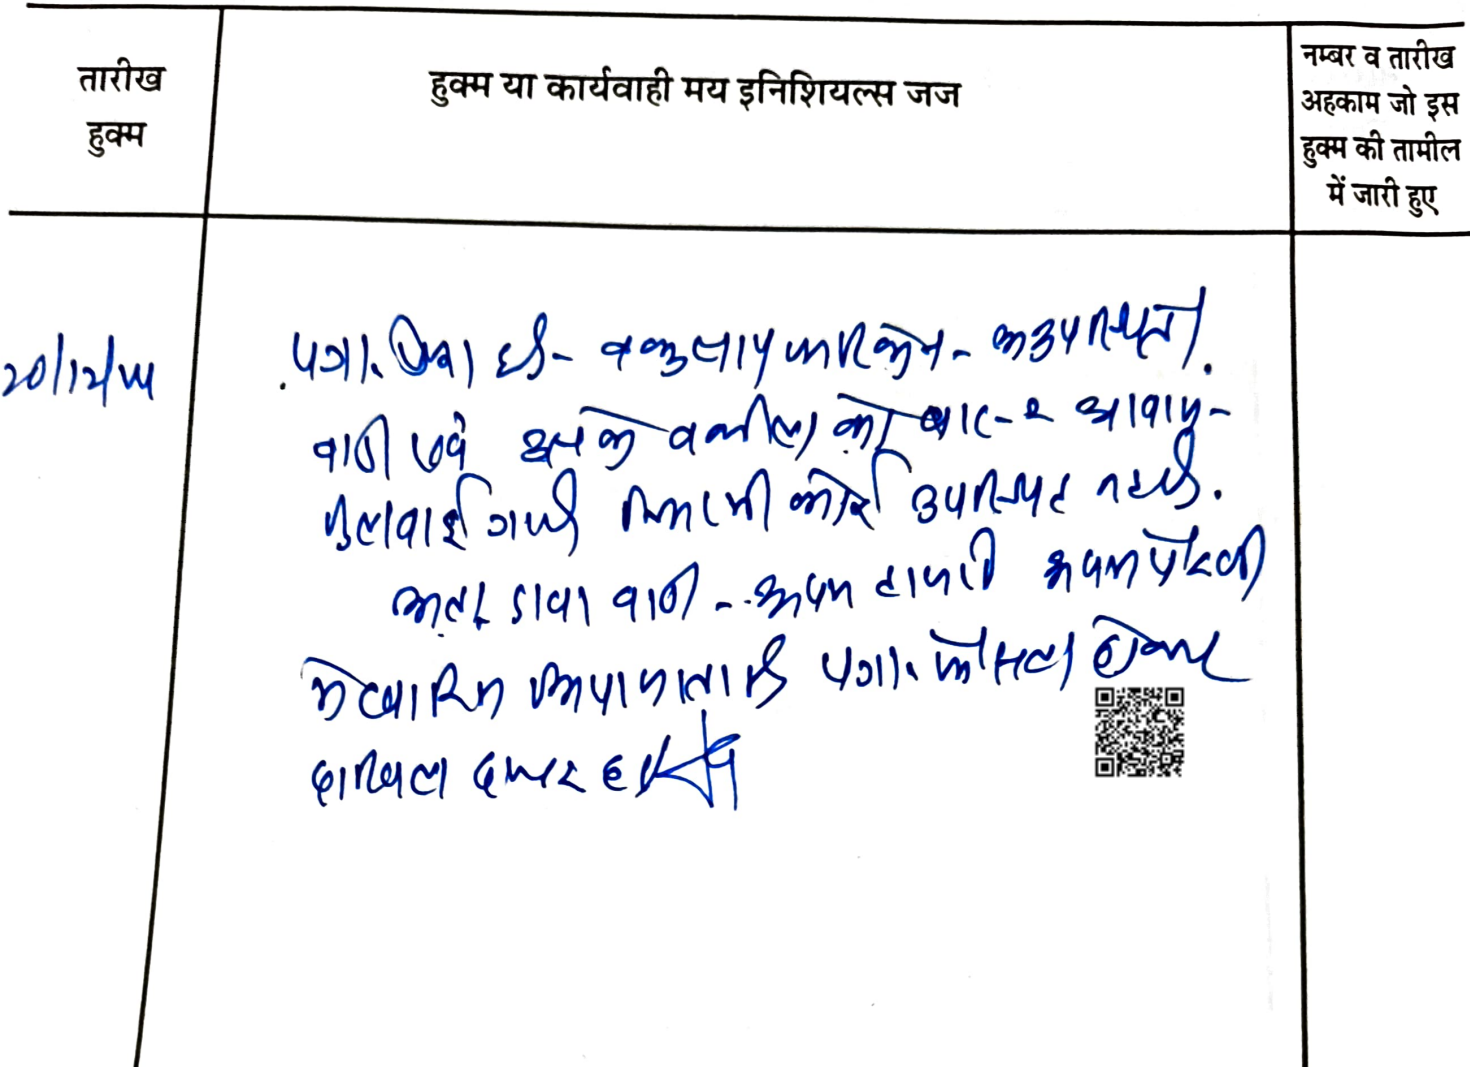 तारीख
हुक्म
हुक्म या कार्यवाही मय इनिशियल्स जज
नम्बर व तारीख
अहकाम जो इस
हुक्म की तामील
में जारी हुए
पत्रा. पेश हुई - वकुलाय फरिकेन - अनुपस्थित.
वादी एवं उसके वकील को बार-२ आवाज
लगवाई गयी फिर भी कोई उपस्थित नहीं.
अतः दावा वादी - अदम हाजरी अदम पैरवी
में खारिज किया जाता है पत्रा. फैसला होकर
दाखिल दफ्तर हो